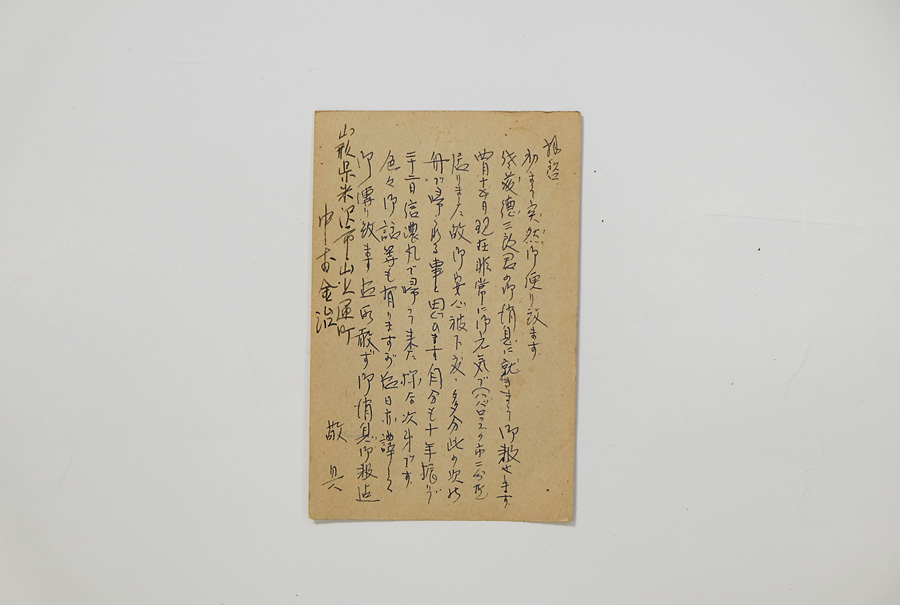 拝啓
初めて突然御便り致ます
後藤德三郎君の御消息に就きまして御報せします
四月十五日現在非常に御元気で(ハバロスク市二分所
居りました故御安心被下度、多分此の次の
舟で帰れる事と思ひます自分も十年振りで
二十二日信濃丸で帰って来た様な次第です
色々御話等も有りますが后日亦詳しく
御便り致ます 取敢ず御消息御報迄
敬具
山形県米沢市山上通町
中村金治